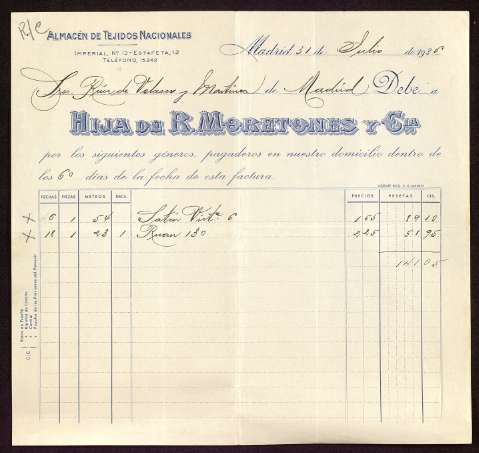 R/C
ALMACÉN DE TEJIDOS NACIONALES
IMPERIAL, Nº 12-ESTAFETA, 12
TELÉFONO, 15343
Madrid 31 de Julio de 1935
Sres. Ruiz de Velasco y Martinez de Madrid Debe a
HIJA DE R. MORETONES Y Cía
por los siguientes géneros, pagaderos en nuestro domicilio dentro de
los 60 días de la fecha de esta factura.
FECHAS PIEZAS METROS PRECIOS PESETAS CTS.
X 6 1 54 Satén 6 1 65 89 10
X 18 1 23 1 Ruan 130 2,25 51 95
141 05